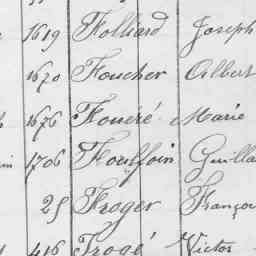 1619 Folliard Joseph
1620 Foucher Albert
1676 Fouéré Marie
1706 Foulfoin Guilla
25 Froger Françoi
416 Frogé Victor